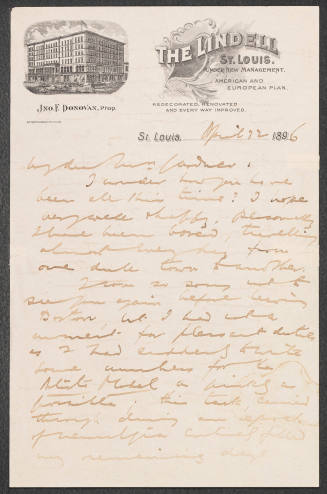 THE LINDELL
ST. LOUIS.
UNDER NEW MANAGEMENT.
AMERICAN AND
EUROPEAN PLAN.
JNO. F. DONOVAN, PROP.
REDECORATED, RENOVATED
AND EVERY WAY IMPROVED.
St. Louis, April 22 1896
My dear Mrs Gardner:
I wonder how you have
been all this time? I hope
very well & happy. Personally
I have been bored, travelling
almost every day from
one dull town to another.
I was so sorry not to
see you again before leaving
Boston, but I had not a
moment for pleasant duties
as I had suddenly to write
some numbers for the
as quickly as
possible. This task, carried
through during an
of neuralgia
my remaining days